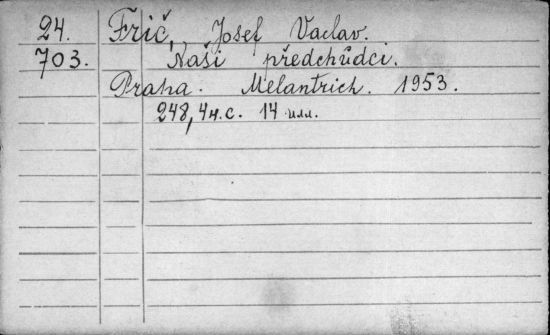 24. Frič, Josef Vaclav.
703. Naši předchůdci.
Praha. Melantrich. 1953.
248, 4н.с. 14 илл.